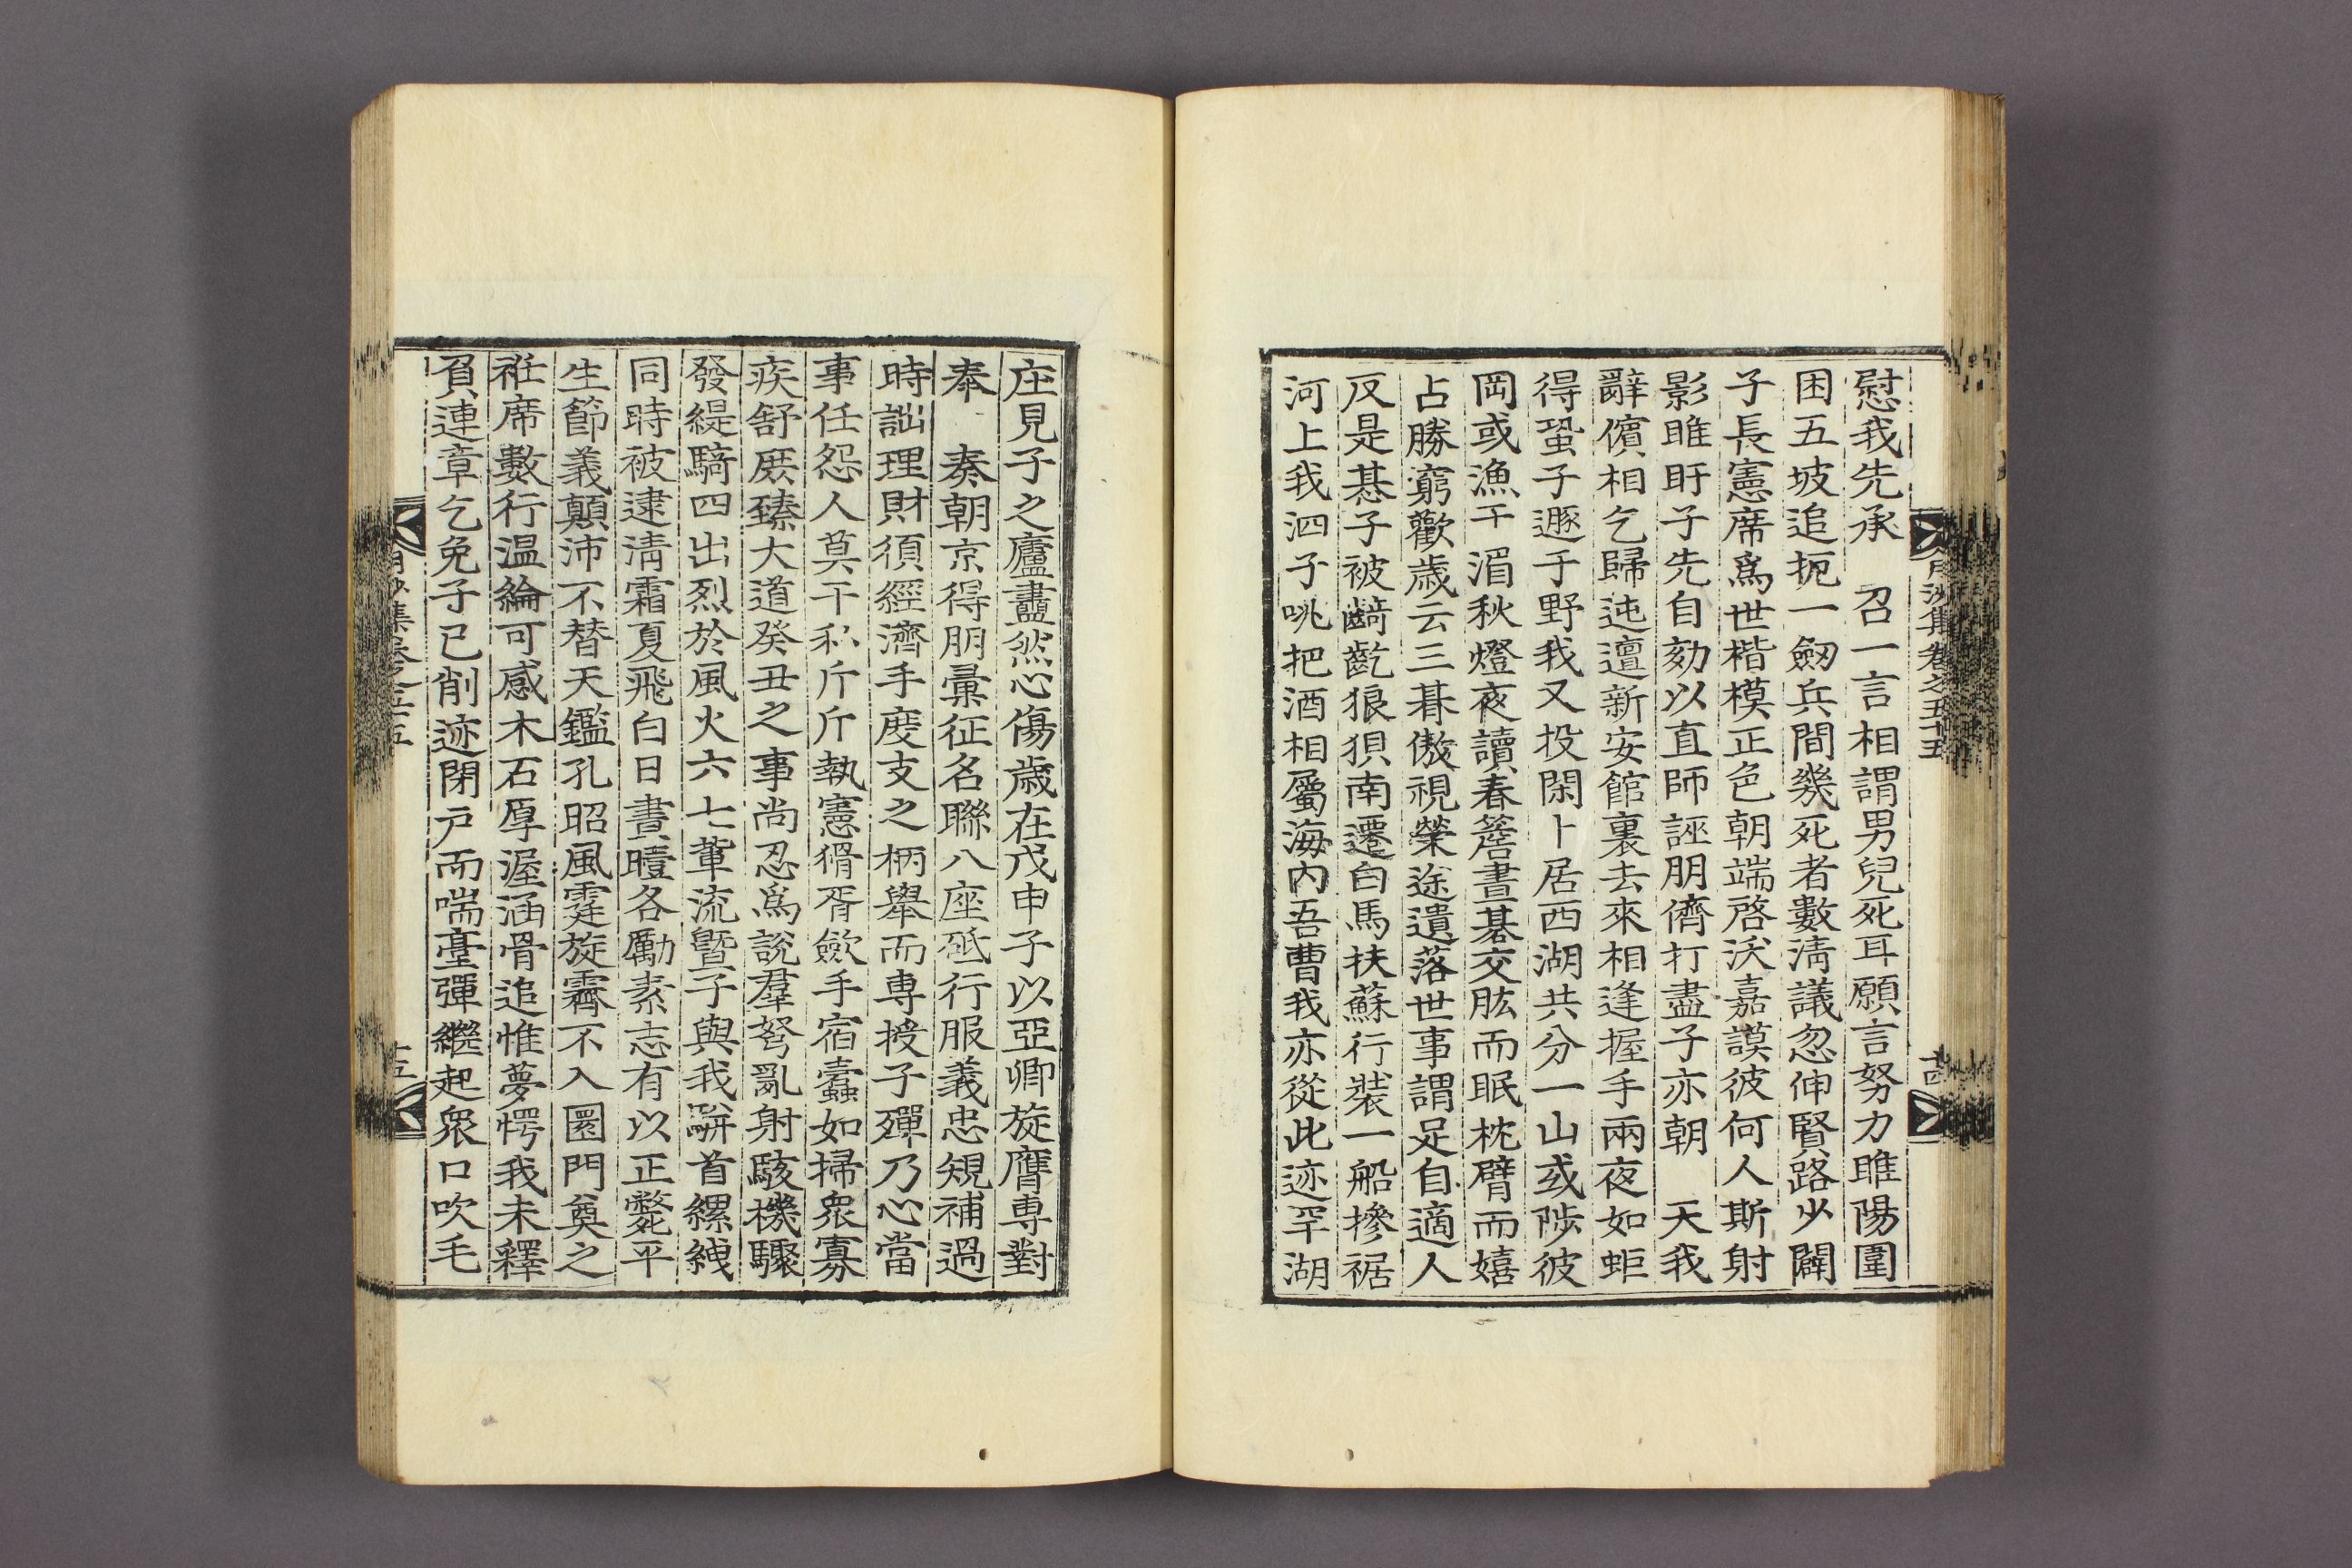 慰我先承 召一言相謂男兒死耳願言努力睢陽圍
困五坡追扼一劒兵間幾死者數淸議忽伸賢路少闢
子長憲席爲世楷模正色朝端啓沃嘉謨彼何人斯射
影睢盱子先自劾以直師誣朋儕打盡子亦朝 天我
辭儐相乞歸迍邅新安館裏去來相逢握手兩夜如蚷
得蛩子遯于野我又投閑卜居西湖共分一山或陟彼
岡或漁于湄秋燈夜讀春簷晝碁交肱而眠枕臂而嬉
占勝窮歡歲云三朞傲視榮途遺落世事謂足自適人
反是惎子被齮齕狼狽南遷白馬扶蘇行裝一船摻裾
河上我泗子咷把酒相屬海內吾曹我亦從此迹罕湖
月沙集卷之五十五
十四
庄見子之廬盡然心傷歲在戊申子以亞卿旋膺專對
奉 奏朝京得朋彙征名聯八座砥行服義忠䂓補過
時詘理財須經濟手度支之柄舉而專授子殫乃心當
事任怨人莫干私斤斤執憲猾胥斂手宿蠹如掃衆寡
疾舒庶臻大道癸丑之事尚忍爲說羣弩亂射駭機驟
發緹騎四出烈於風火六七輩流曁子與我駢首縲絏
同時被逮淸霜夏飛白日晝曀各勵素志有以正斃平
生節義顚沛不替天鑑孔昭風霆旋霽不入圜門奠之
袵席數行温綸可感木石厚渥涵骨追惟夢愕我未釋
負連章乞免子已削迹閉戶而喘臺彈繼起衆口吹毛
月沙集卷之五十五
十五